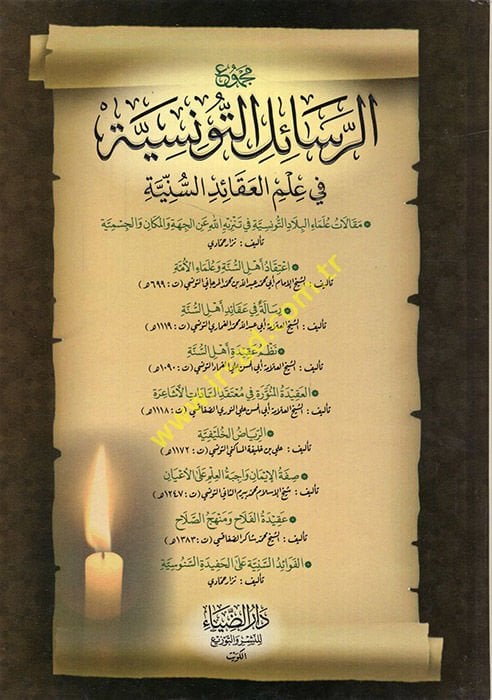 مجموع
الرسائل التونسية
في علم العقائد السنية
• مقالات علماء البلاد التونسية في تنزيه الله عن الجهة والمكان والجسمية
تأليف : نزار حمادي
• اعتقاد أهل السنة وعلماء الأمة
تأليف : الشيخ الإمام أبي محمد عبد الله بن محمد المرجاني التونسي (ت : ٦٩٩هـ)
• رسالة في عقائد أهل السنة
تأليف : الشيخ العلامة أبي عبد الله محمد الغماري التونسي (ت : ١١١٩هـ)
• نظم عقيدة أهل السنة
تأليف : الشيخ العلامة أبي الحسن علي الغماد التونسي (ت : ١٠٩٠هـ)
• العقيدة المنورة في معتقد السادات الأشاعرة
تأليف : الشيخ العلامة أبي الحسن علي النوري الصفاقسي (ت : ١١١٨هـ)
• الرياض الخليفية
تأليف : علي بن خليفة المساكني التونسي (ت : ١١٧٢هـ)
• صفة الإيمان واجبة العلم على الأعيان
تأليف : شيخ الإسلام محمد بيرم الثاني التونسي (ت : ١٢٤٧هـ)
• عقيدة الفلاح ومنهج الصلاح
تأليف : الشيخ محمد شاكر الصفاقسي (ت : ١٣٨٣هـ)
• الفوائد السنية على الحفيدة السنوسية
تأليف : نزار حمادي
دار الضياء
للنشر والتوزيع
الكويت